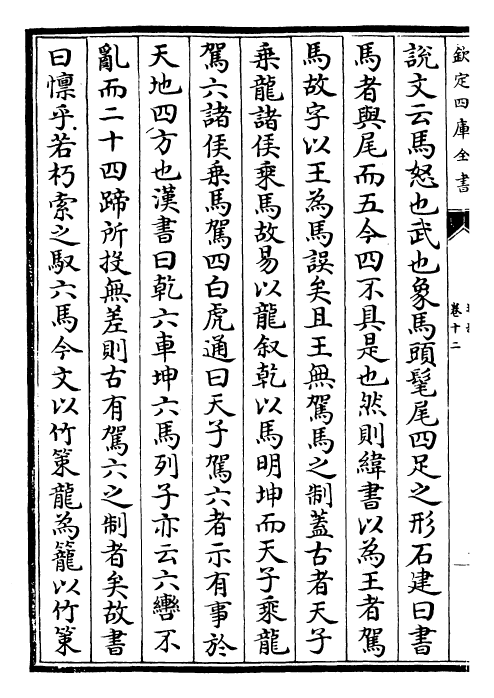 欽定四庫全書
卷十二
說文云馬怒也武也象馬頭髦尾四足之形石建曰書
馬者與尾而五今四不具是也然則緯書以為王者駕
馬故字以王為馬誤矣且王無駕馬之制蓋古者天子
乗龍諸侯乗馬故易以龍叙乾以馬明坤而天子乗龍
駕六諸侯乗馬駕四白虎通曰天子駕六者示有事於
天地四方也漢書曰乾六車坤六馬列子亦云六轡不
亂而二十四蹄所投無差則古有駕六之制者矣故書
曰懔乎若朽索之馭六馬今文以竹策龍為籠以竹策